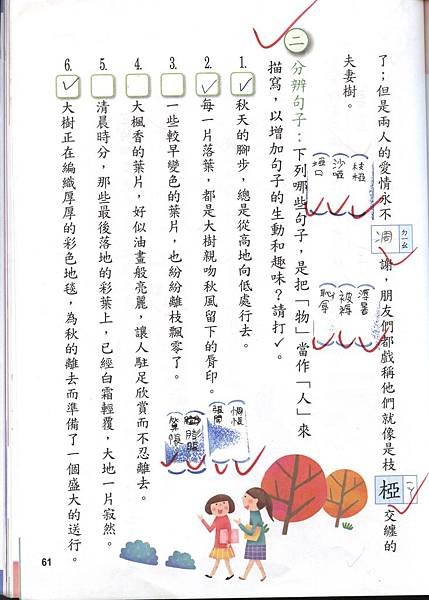 了；但是兩人的愛情永不凋ㄉㄧㄠ謝，朋友們都戲稱他們就像是枝椏ㄧㄚ交纏的
夫妻樹。
枝椏
沙啞
溽暑
被褥
恥辱
二 分辨句子：下列哪些句子，是把「物」當作「人」來
描寫，以增加句子的生動和趣味？請打✓。
1. ✓ 秋天的腳步，總是從高地向低處行去。
2. ✓ 每一片落葉，都是大樹親吻秋風留下的脣印。
3. 一些較早變色的葉片，也紛紛離枝飄零了。
4. 大楓香的葉片，好似油畫般亮麗，讓人駐足欣賞而不忍離去。
5. 清晨時分，那些最後落地的彩葉上，已經白霜輕覆，大地一片寂然。
6. ✓ 大樹正在編織厚厚的彩色地毯，為秋的離去而準備了一個盛大的送行。
惆悵
膨脹
61